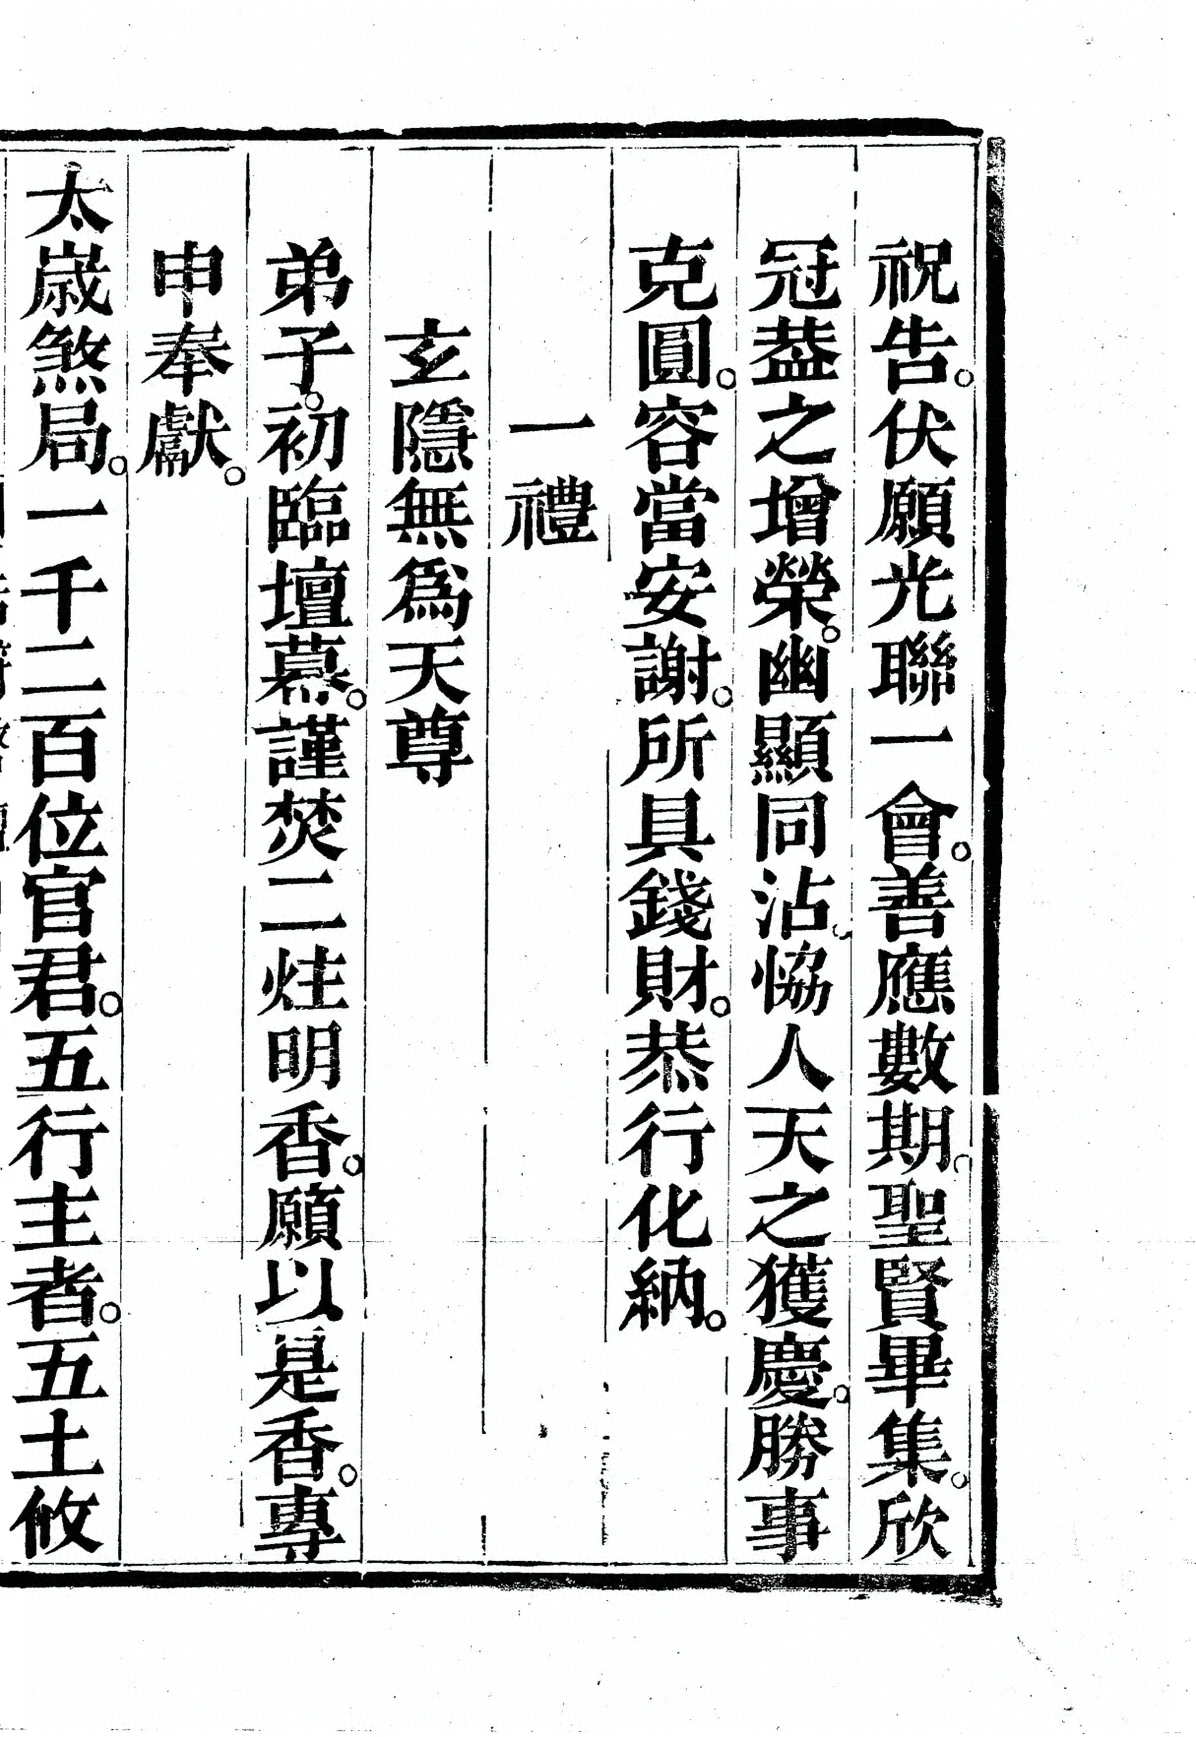 祝告。伏願光聯一會。善應數期。聖賢畢集。欣
冠葢之增榮。幽顯同沾。恊人天之獲慶。勝事
克圓。容當安謝。所具錢財。恭行化納。
一禮
玄隱無爲天尊
弟子。初臨壇幕。謹焚二炷明香。願以是香。專
申奉獻。
太歲煞局。一千二百位官君。五行主者。五土攸